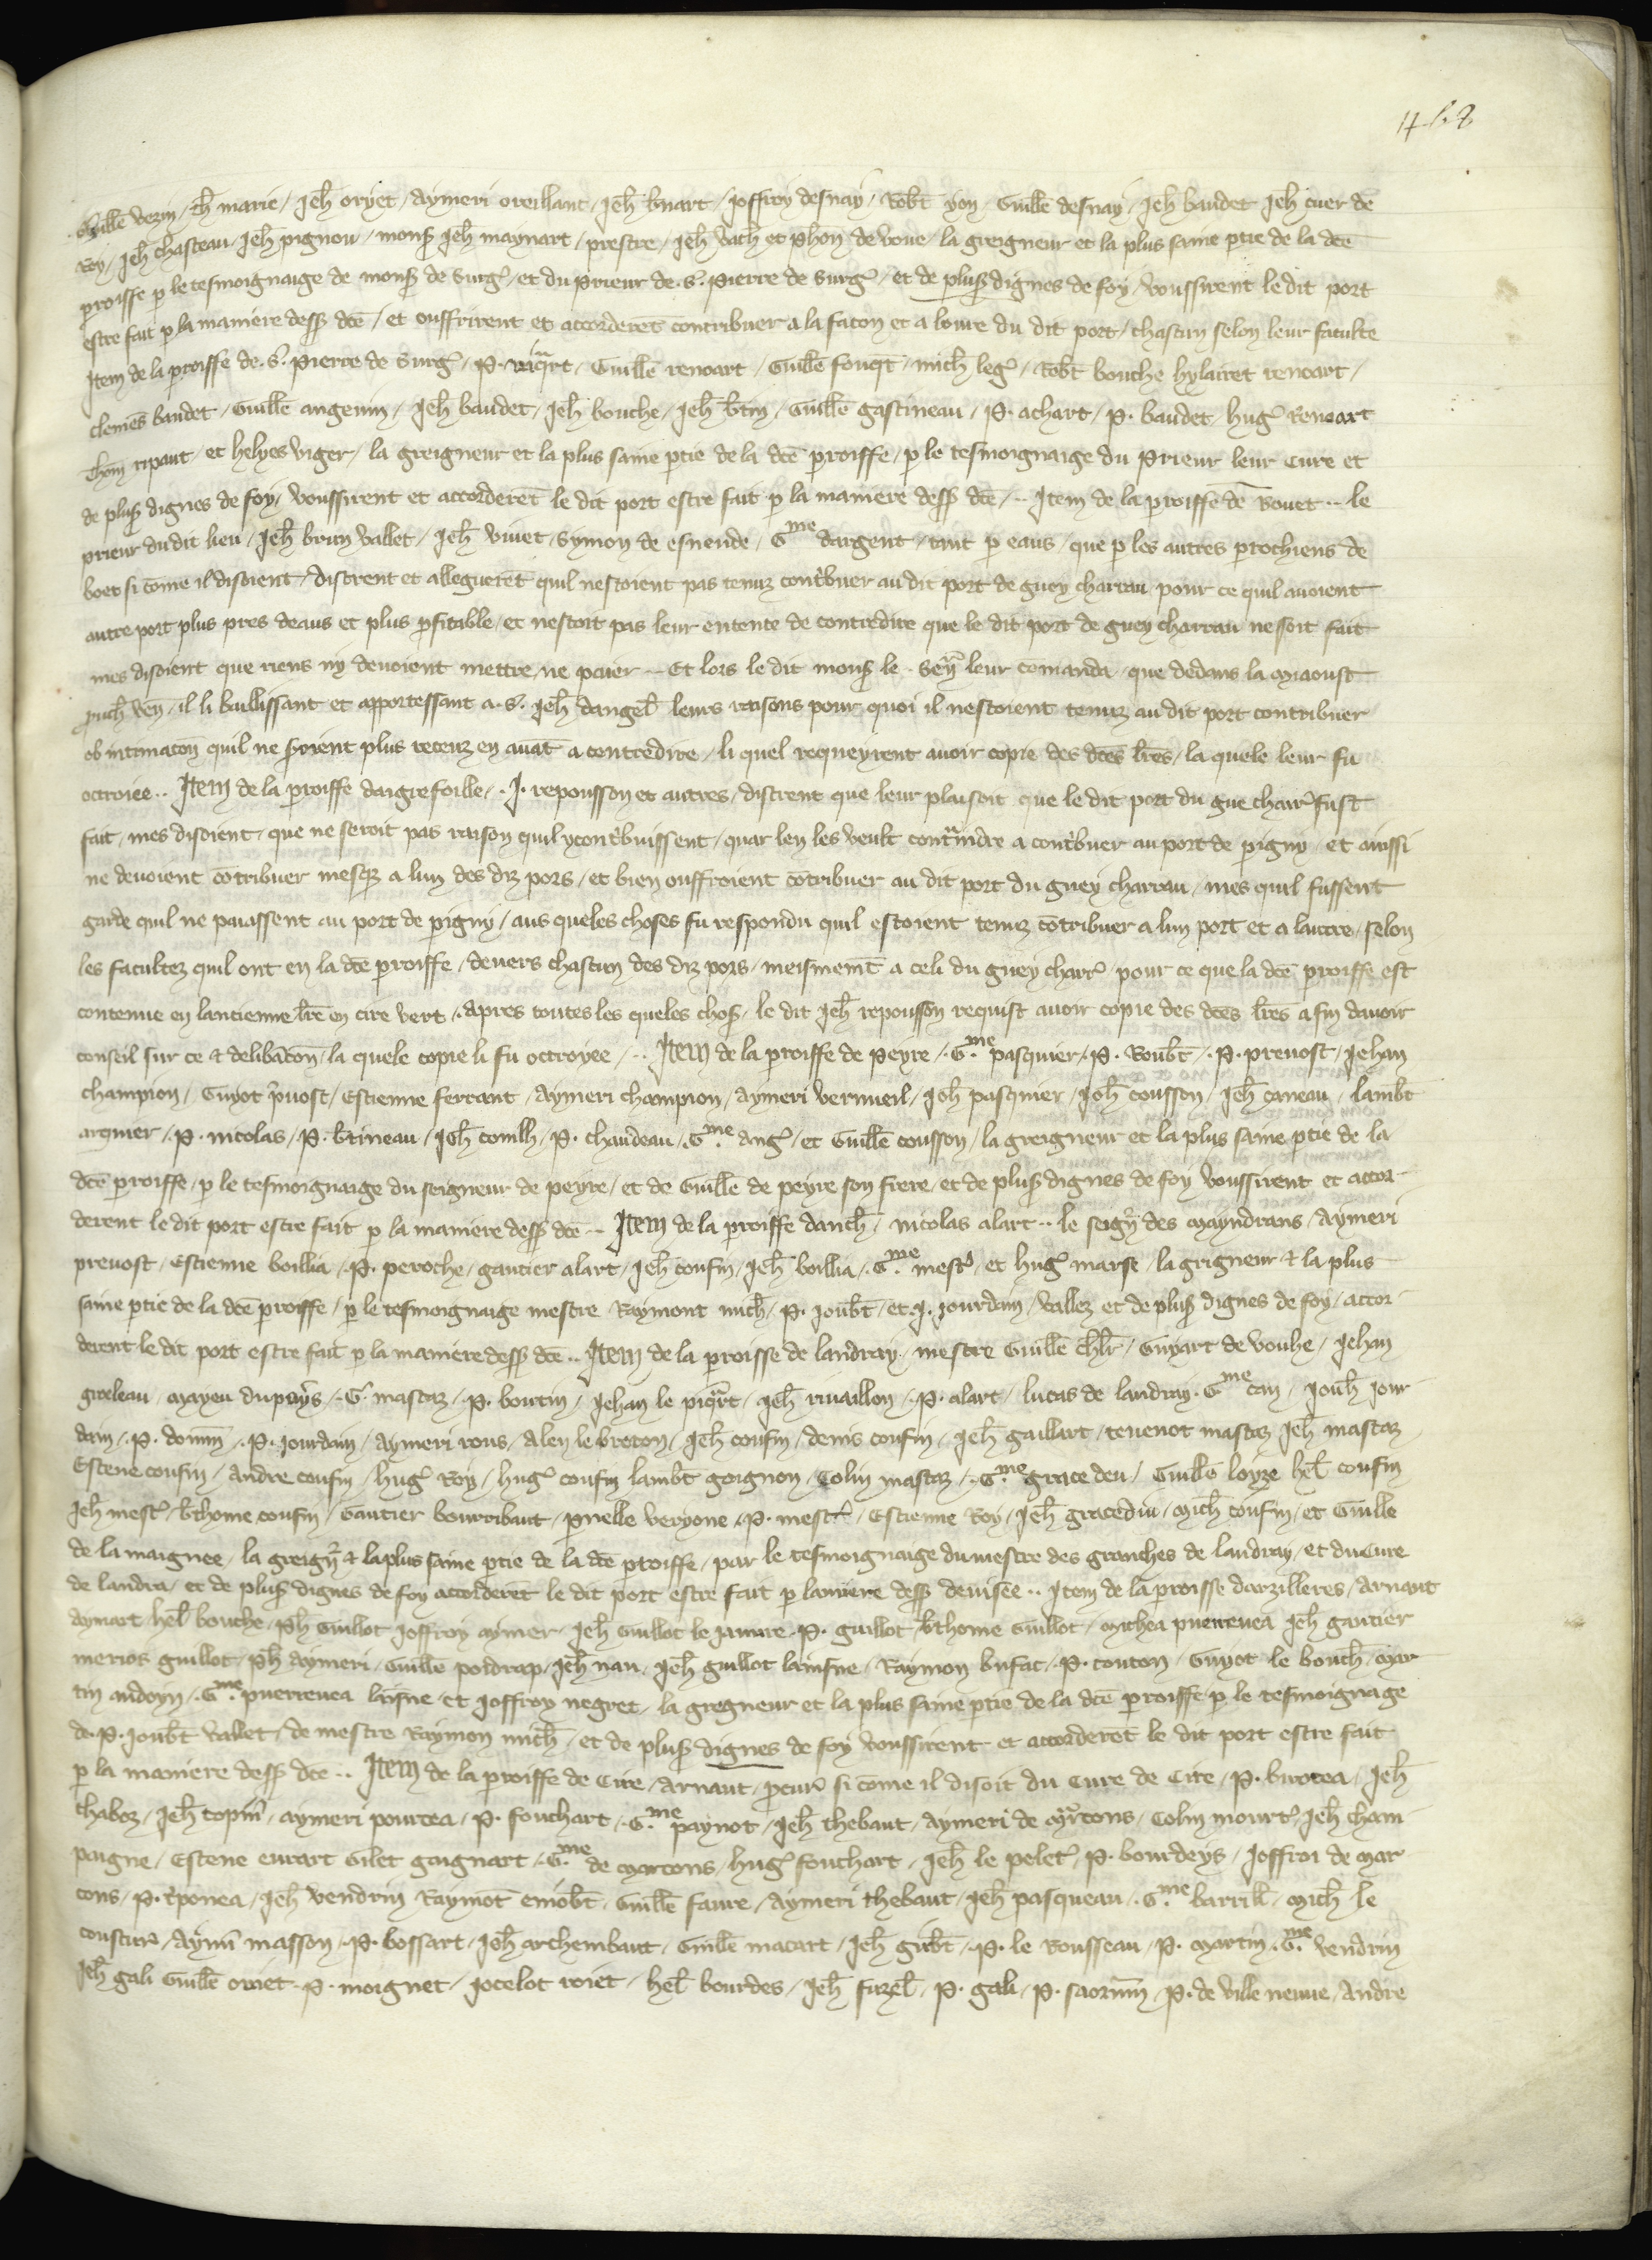 Guillē vezin / th̄ marie / Jeh̄ oryet / Aymeri oreillant / Jeh̄ b̄nart / Joffroy desnay / Rob̄t yon / Guillē desnay / Jeh̄ baudet Jeh̄ cuer de
Roy / Jeh̄ chasteau / Jeh̄ pignou / mons̄ Jeh̄ maynart / prestre / Jeh̄ vach̄ et Phon̄ de voue / la greigneur et la plus saine ptie de la dcē
proisse p le tesmoignaige de mons̄ de Surg̾ / et du Prieur de .S. Pierre de Surg̾ / et de plus̄ dignes de foy / voussirent le dit port
estre fait p la maniere dess̄ dcē / et ouffrirent et accorderēt contribuer a la facon et a louvre du dit port / chascun selon leur faculte
Item de la proisse de .S. Pierre de Surg̾ / P. riqart / Guillē renoart / Guillē fouqt / mich̄ leg̾ / Rob̄t bouche hylairet renoart /
clemēs baudet / Guillē angevin / Jeh̄ baudet / Jeh̄ bouche / Jeh̄ b̄tin / Guillē gastineau / P. achart / P. baudet / hug̾ Renoart
Thom̄ ripaut / et helyes viger / la greigneur et la plus saine ptie de la dcē proisse / p le tesmoignaige du Prieur leur Cure et
de plus̄ dignes de foy / voussirent et accorderēt le dit port estre fait p la maniere dess̄ dcē / .. Item de la proisse de Bouet .. le
prieur du dit lieu / Jeh̄ brun vallet / Jeh̄ vivet / Symon de esnende / Gme dargent / tant p eaus / que p les autres prochiens de
boet si cōme il disoient / distrent et alleguerēt quil nestoient pas tenuz cont̾buer au dit port de guey charrau pour ce quil avoient
autre port plus pres deaus et plus pfitable / et nestoit pas leur entente de contredire que le dit port de guey charrau ne soit fait
mes disoient que riens ny devoient mettre ne paier .. Et lors le dit mons̄ le Sen̄ leur comanda / que dedans la myaoust
proch̄ ven̄ / il li baillissant et apportessant a .S. Jeh̄ dangel̄ leurs raisons pour quoi il nestoient tenuz au dit port contribuer
ob intimacōn quil ne s̾oient plus receuz en avāt a contredire / li quel requeyrent avoir copie des dcēs lr̄es / la quele leur fu
octroiee .. Item de la proisse daigrefoille / .J. repousson et autres / distrent que leur plaisoit que le dit port du gue charr̾ fust
fait / mes disoient / que ne seroit pas raison quil ycont̾buissent / quar len les veult cont̾indre a cont̾buer au port de pigny / et aussi
ne devoient cōtribuer mesq̄ a lun des diz pors / et bien ouffroient cōtribuer au dit port du guey charrau / mes quil fussent
garde quil ne paiassent au port de pigny / aus queles choses fu respondu quil estoient tenuz cōtribuer a lun port et a lautre / selon
les facultez quil ont en la dcē proisse / devers chascun des diz pors / meismemēt a celi du guey charr̾ / pour ce que la dcē proisse est
contenue en lancienne lr̄e en cire vert / apres toutes les queles chos̄ / le dit Jeh̄ repousson requist avoir copie des dcēs lr̄es afin davoir
conseil sur ce & delibācōn / la quele copie li fu octroyee / .. Item de la proisse de Peyre / Gme pasquier / P. Roub̄t / P. prevost / Jehan
champion / Guyot p̾vost / Estienne ferrant / Aymeri champion / Aymeri vermeil / Jeh̄ pasquier / Jeh̄ cousson / Jeh̄ caneau / Lamb̄t
arquier / P. nicolas / P. b̄tineau / Jeh̄ conilh̄ / P. chaudeau / Gme ang̾ / et Guillē cousson / la greigneur et la plus saine ptie de la
dcē proisse / p le tesmoignaige du seigneur de peyre / et de Guillē de peyre son frere / et de plus̄ dignes de foy voussirent et accor-
derent le dit port estre fait p la maniere dess̄ dcē .. Item de la proisse danch̄ / nicolas alart .. le seign̄ des Mayndrans / Aymeri
prevost / Estienne boillia / P. peroche / gautier alart / Jeh̄ cousin / Jeh̄ boillia / Gme mest̾ / et hug̾ marse / la grigneur & la plus
saine ptie de la dcē proisse / p le tesmoignaige mestre Raymont mich̄ / P. Joub̄t / et .J. Jourdain / vallez et de plus̄ dignes de foy / accor-
derent le dit port estre fait p la maniere dess̄ dcē .. Item de la proisse de landray / mestre Guillē chlr̄ / Guyart de vouhe / Jehan
groleau / Mayeu dupuys / .G. mastaz / P. bourtin / Jehan le piqart / Jeh̄ rivaillon / P. alart / Lucas de landray / Gme can / Jouh̄ Jour
dain / P. domin̄ / P. Jourdain / Aymeri rous / Alen le breton / Jeh̄ cousin / denis cousin / Jeh̄ gaillart / tevenot mastaz Jeh̄ mastaz
Estene cousin / Andre cousin / hug̾ Roy / hug̾ cousin lamb̄t goignon / Colin mastaz / Gme grace deu / Guillē loyze hel̄ cousin
Jeh̄ mest̾ / b̄thome cousin / Gautier bourribaut / pnelle veryone / P. mest̾ / Estienne Roy / Jeh̄ gracediu / Mich̄ cousin / et Guillē
de la maignee / la greign̄ & la plus saine ptie de la dcē proisse / par le tesmoignaige du mestre des granches de landray / et du Cure
de landra / et de plus̄ dignes de foy accorderēt le dit port estre fait p laniere dess̄ devisee .. Item de la proisse darzilleres / Arnaut
Aymart hel̄ bouche / Ph̄ Guillot Joffroy aymer / Jeh̄ Guillot le Jaunre / P. guillot b̄thome Guillot / Michea puerrevea Jeh̄ gautier
merios guillot / Ph̄ Aymeri / Guillē poidrap / Jeh̄ nau / Jeh̄ guillot lainsne / Raymon bufat / P. touton / Guyot le bouch̄ / Mar
tin audoyn / Gme puerrevea laisne et Joffroy negret / la gregneur et la plus saine ptie de la dcē proisse / p le tesmoignage
de .P. Joub̄t vallet / de mestre Raymon mich̄ / et de plus̄ dignes de foy voussirent et accorderēt le dit port estre fait
p la maniere dess̄ dcē .. Item de la proisse de Cire / Arnaut / pcur̄ si cōme il disoit du Cure de Cire / P. birotea / Jeh̄
chaboz / Jeh̄ topin̄ / Aymeri pourcea / P. fouchart / Gme paynot / Jeh̄ thebaut / Aymeri de Martons / Colin mourt̾ / Jeh̄ cham
paigne / Estene evrart Gilet gaignart / Gme de Marcons / hug̾ fouchart / Jeh̄ le pelet̾ / P. bourdeys / Joffroi de Mar
cons / P. c̾ponea / Jeh̄ vendrin Raymōt emob̄t / Guillē faure / Aymeri thebaut / Jeh̄ pasqueau / Gme barrill̄ / Mich̄ le
coustur̾ / Aym̄i masson / P. bossart / Jeh̄ archembaut / Guillē macart / Jeh̄ gib̄t / P. le Rousseau / P. Martin / Gme vendrin
Jeh̄ gali Guillē oriet / P. moignet / Jocelot roiet / hel̄ bourdes / Jeh̄ fuzel̄ / P. gali / P. saornin̄ / P. de ville neuve / Andre